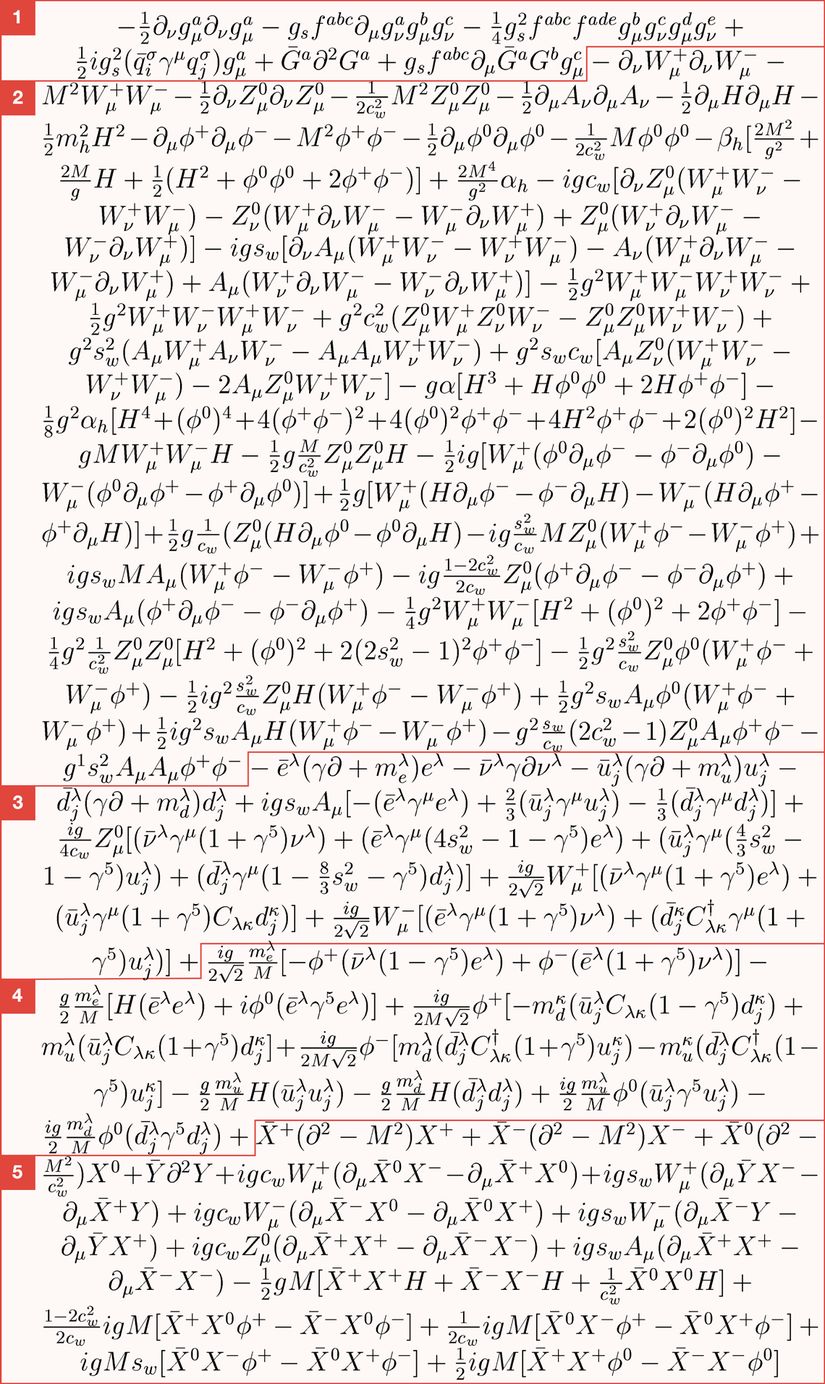 1 $-\frac{1}{2}\partial_\nu g^a_\mu \partial_\nu g^a_\mu - g_s f^{abc}\partial_\mu g^a_\nu g^b_\mu g^c_\nu - \frac{1}{4}g^2_s f^{abc}f^{ade}g^b_\mu g^c_\nu g^d_\mu g^e_\nu +$
$\frac{1}{2}ig^2_s(\bar{q}^\sigma_i\gamma^\mu q^\sigma_j)g^a_\mu + \bar{G}^a\partial^2G^a + g_s f^{abc}\partial_\mu\bar{G}^aG^bg^c_\mu - \partial_\nu W^+_\mu\partial_\nu W^-_\mu -$
2 $M^2W^+_\mu W^-_\mu - \frac{1}{2}\partial_\nu Z^0_\mu\partial_\nu Z^0_\mu - \frac{1}{2c^2_w}M^2Z^0_\mu Z^0_\mu - \frac{1}{2}\partial_\mu A_\nu\partial_\mu A_\nu - \frac{1}{2}\partial_\mu H\partial_\mu H -$
$\frac{1}{2}m^2_hH^2 - \partial_\mu\phi^+\partial_\mu\phi^- - M^2\phi^+\phi^- - \frac{1}{2}\partial_\mu\phi^0\partial_\mu\phi^0 - \frac{1}{2c^2_w}M\phi^0\phi^0 - \beta_h[\frac{2M^2}{g^2} +$
$\frac{2M}{g}H + \frac{1}{2}(H^2 + \phi^0\phi^0 + 2\phi^+\phi^-)] + \frac{2M^4}{g^2}\alpha_h - igc_w[\partial_\nu Z^0_\mu(W^+_\mu W^-_\nu -$
$W^+_\nu W^-_\mu) - Z^0_\nu(W^+_\mu\partial_\nu W^-_\mu - W^-_\mu\partial_\nu W^+_\mu) + Z^0_\mu(W^+_\nu\partial_\nu W^-_\mu -$
$W^-_\nu\partial_\nu W^+_\mu)] - igs_w[\partial_\nu A_\mu(W^+_\mu W^-_\nu - W^+_\nu W^-_\mu) - A_\nu(W^+_\mu\partial_\nu W^-_\mu -$
$W^-_\mu\partial_\nu W^+_\mu) + A_\mu(W^+_\nu\partial_\nu W^-_\mu - W^-_\nu\partial_\nu W^+_\mu)] - \frac{1}{2}g^2W^+_\mu W^-_\mu W^+_\nu W^-_\nu +$
$\frac{1}{2}g^2W^+_\mu W^-_\nu W^+_\mu W^-_\nu + g^2c^2_w(Z^0_\mu W^+_\mu Z^0_\nu W^-_\nu - Z^0_\mu Z^0_\mu W^+_\nu W^-_\nu) +$
$g^2s^2_w(A_\mu W^+_\mu A_\nu W^-_\nu - A_\mu A_\mu W^+_\nu W^-_\nu) + g^2s_wc_w[A_\mu Z^0_\nu(W^+_\mu W^-_\nu -$
$W^+_\nu W^-_\mu) - 2A_\mu Z^0_\mu W^+_\nu W^-_\nu] - g\alpha[H^3 + H\phi^0\phi^0 + 2H\phi^+\phi^-] -$
$\frac{1}{8}g^2\alpha_h[H^4 + (\phi^0)^4 + 4(\phi^+\phi^-)^2 + 4(\phi^0)^2\phi^+\phi^- + 4H^2\phi^+\phi^- + 2(\phi^0)^2H^2] -$
$gMW^+_\mu W^-_\mu H - \frac{1}{2}g\frac{M}{c^2_w}Z^0_\mu Z^0_\mu H - \frac{1}{2}ig[W^+_\mu(\phi^0\partial_\mu\phi^- - \phi^-\partial_\mu\phi^0) -$
$W^-_\mu(\phi^0\partial_\mu\phi^+ - \phi^+\partial_\mu\phi^0)] + \frac{1}{2}g[W^+_\mu(H\partial_\mu\phi^- - \phi^-\partial_\mu H) - W^-_\mu(H\partial_\mu\phi^+ -$
$\phi^+\partial_\mu H)] + \frac{1}{2}g\frac{1}{c_w}(Z^0_\mu(H\partial_\mu\phi^0 - \phi^0\partial_\mu H) - ig\frac{s^2_w}{c_w}MZ^0_\mu(W^+_\mu\phi^- - W^-_\mu\phi^+) +$
$igs_wMA_\mu(W^+_\mu\phi^- - W^-_\mu\phi^+) - ig\frac{1-2c^2_w}{2c_w}Z^0_\mu(\phi^+\partial_\mu\phi^- - \phi^-\partial_\mu\phi^+) +$
$igs_wA_\mu(\phi^+\partial_\mu\phi^- - \phi^-\partial_\mu\phi^+) - \frac{1}{4}g^2W^+_\mu W^-_\mu[H^2 + (\phi^0)^2 + 2\phi^+\phi^-] -$
$\frac{1}{4}g^2\frac{1}{c^2_w}Z^0_\mu Z^0_\mu[H^2 + (\phi^0)^2 + 2(2s^2_w - 1)^2\phi^+\phi^-] - \frac{1}{2}g^2\frac{s^2_w}{c_w}Z^0_\mu\phi^0(W^+_\mu\phi^- +$
$W^-_\mu\phi^+) - \frac{1}{2}ig^2\frac{s^2_w}{c_w}Z^0_\mu H(W^+_\mu\phi^- - W^-_\mu\phi^+) + \frac{1}{2}g^2s_wA_\mu\phi^0(W^+_\mu\phi^- +$
$W^-_\mu\phi^+) + \frac{1}{2}ig^2s_wA_\mu H(W^+_\mu\phi^- - W^-_\mu\phi^+) - g^2\frac{s_w}{c_w}(2c^2_w - 1)Z^0_\mu A_\mu\phi^+\phi^- -$
$g^1s^2_wA_\mu A_\mu\phi^+\phi^- - \bar{e}^\lambda(\gamma\partial + m^\lambda_e)e^\lambda - \bar{\nu}^\lambda\gamma\partial\nu^\lambda - \bar{u}^\lambda_j(\gamma\partial + m^\lambda_u)u^\lambda_j -$
3 $\bar{d}^\lambda_j(\gamma\partial + m^\lambda_d)d^\lambda_j + igs_wA_\mu[-(\bar{e}^\lambda\gamma^\mu e^\lambda) + \frac{2}{3}(\bar{u}^\lambda_j\gamma^\mu u^\lambda_j) - \frac{1}{3}(\bar{d}^\lambda_j\gamma^\mu d^\lambda_j)] +$
$\frac{ig}{4c_w}Z^0_\mu[(\bar{\nu}^\lambda\gamma^\mu(1 + \gamma^5)\nu^\lambda) + (\bar{e}^\lambda\gamma^\mu(4s^2_w - 1 - \gamma^5)e^\lambda) + (\bar{u}^\lambda_j\gamma^\mu(\frac{4}{3}s^2_w -$
$1 - \gamma^5)u^\lambda_j) + (\bar{d}^\lambda_j\gamma^\mu(1 - \frac{8}{3}s^2_w - \gamma^5)d^\lambda_j)] + \frac{ig}{2\sqrt{2}}W^+_\mu[(\bar{\nu}^\lambda\gamma^\mu(1 + \gamma^5)e^\lambda) +$
$(\bar{u}^\lambda_j\gamma^\mu(1 + \gamma^5)C_{\lambda\kappa}d^\kappa_j)] + \frac{ig}{2\sqrt{2}}W^-_\mu[(\bar{e}^\lambda\gamma^\mu(1 + \gamma^5)\nu^\lambda) + (\bar{d}^\kappa_jC^\dagger_{\lambda\kappa}\gamma^\mu(1 +$
$\gamma^5)u^\lambda_j)] + \frac{ig}{2\sqrt{2}}\frac{m^\lambda_e}{M}[-\phi^+(\bar{\nu}^\lambda(1 - \gamma^5)e^\lambda) + \phi^-(\bar{e}^\lambda(1 + \gamma^5)\nu^\lambda)] -$
4 $\frac{g}{2}\frac{m^\lambda_e}{M}[H(\bar{e}^\lambda e^\lambda) + i\phi^0(\bar{e}^\lambda\gamma^5e^\lambda)] + \frac{ig}{2M\sqrt{2}}\phi^+[-m^\kappa_d(\bar{u}^\lambda_jC_{\lambda\kappa}(1 - \gamma^5)d^\kappa_j) +$
$m^\lambda_u(\bar{u}^\lambda_jC_{\lambda\kappa}(1 + \gamma^5)d^\kappa_j] + \frac{ig}{2M\sqrt{2}}\phi^-[m^\lambda_d(\bar{d}^\lambda_jC^\dagger_{\lambda\kappa}(1 + \gamma^5)u^\kappa_j) - m^\kappa_u(\bar{d}^\lambda_jC^\dagger_{\lambda\kappa}(1 -$
$\gamma^5)u^\kappa_j] - \frac{g}{2}\frac{m^\lambda_u}{M}H(\bar{u}^\lambda_ju^\lambda_j) - \frac{g}{2}\frac{m^\lambda_d}{M}H(\bar{d}^\lambda_jd^\lambda_j) + \frac{ig}{2}\frac{m^\lambda_u}{M}\phi^0(\bar{u}^\lambda_j\gamma^5u^\lambda_j) -$
$\frac{ig}{2}\frac{m^\lambda_d}{M}\phi^0(\bar{d}^\lambda_j\gamma^5d^\lambda_j) + \bar{X}^+(\partial^2 - M^2)X^+ + \bar{X}^-(\partial^2 - M^2)X^- + \bar{X}^0(\partial^2 -$
5 $\frac{M^2}{c^2_w})X^0 + \bar{Y}\partial^2Y + igc_wW^+_\mu(\partial_\mu\bar{X}^0X^- - \partial_\mu\bar{X}^+X^0) + igs_wW^+_\mu(\partial_\mu\bar{Y}X^- -$
$\partial_\mu\bar{X}^+Y) + igc_wW^-_\mu(\partial_\mu\bar{X}^-X^0 - \partial_\mu\bar{X}^0X^+) + igs_wW^-_\mu(\partial_\mu\bar{X}^-Y -$
$\partial_\mu\bar{Y}X^+) + igc_wZ^0_\mu(\partial_\mu\bar{X}^+X^+ - \partial_\mu\bar{X}^-X^-) + igs_wA_\mu(\partial_\mu\bar{X}^+X^+ -$
$\partial_\mu\bar{X}^-X^-) - \frac{1}{2}gM[\bar{X}^+X^+H + \bar{X}^-X^-H + \frac{1}{c^2_w}\bar{X}^0X^0H] +$
$\frac{1-2c^2_w}{2c_w}igM[\bar{X}^+X^0\phi^+ - \bar{X}^-X^0\phi^-] + \frac{1}{2c_w}igM[\bar{X}^0X^-\phi^+ - \bar{X}^0X^+\phi^-] +$
$igMs_w[\bar{X}^0X^-\phi^+ - \bar{X}^0X^+\phi^-] + \frac{1}{2}igM[\bar{X}^+X^+\phi^0 - \bar{X}^-X^-\phi^0]$